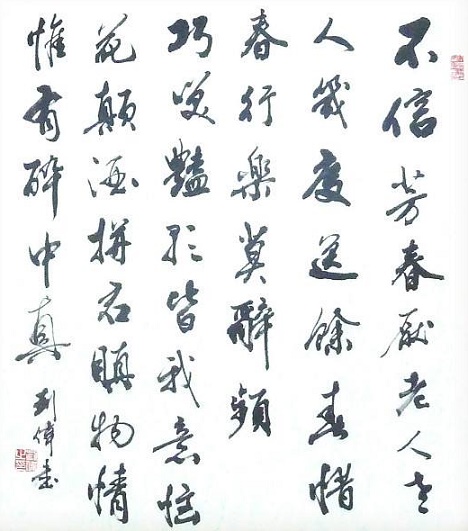 不信芳春厭老人老
人幾度送餘春惜
春行樂莫辭頻
巧笑艷歌皆我意惱
花顛酒拼君瞋物情
惟有醉中真 刘偉書